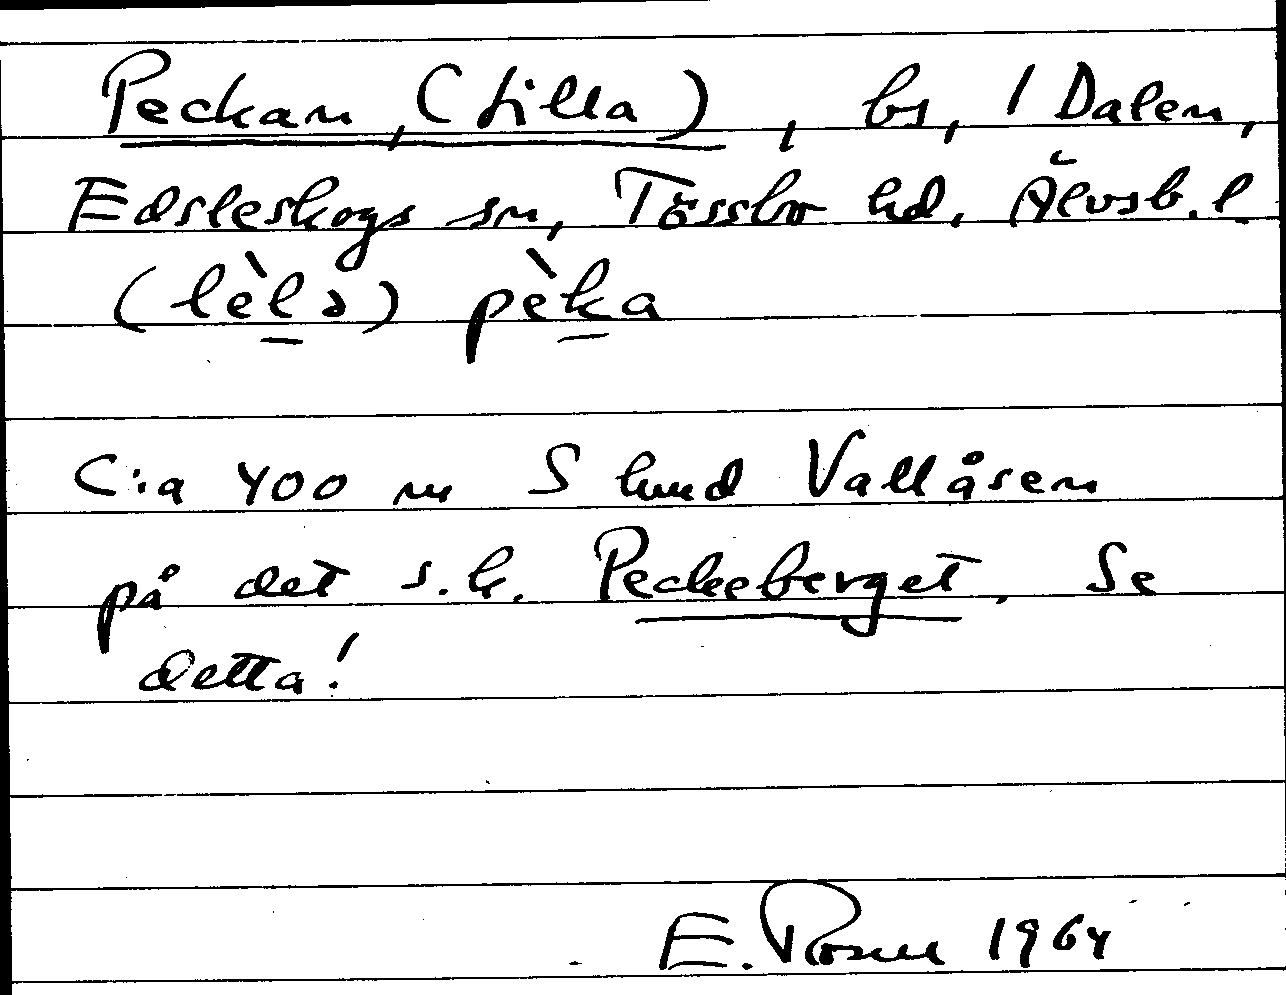 Peckan, (Lilla), bs, 1 Dalen,
Edsleskogs sn, Tössbo hd, Älvsb. l.
(lèlə) pèka
C:a 400 m S hmd Vallåsen
på det s.k. Peckeberget. Se
detta!
E. Rosell 1964